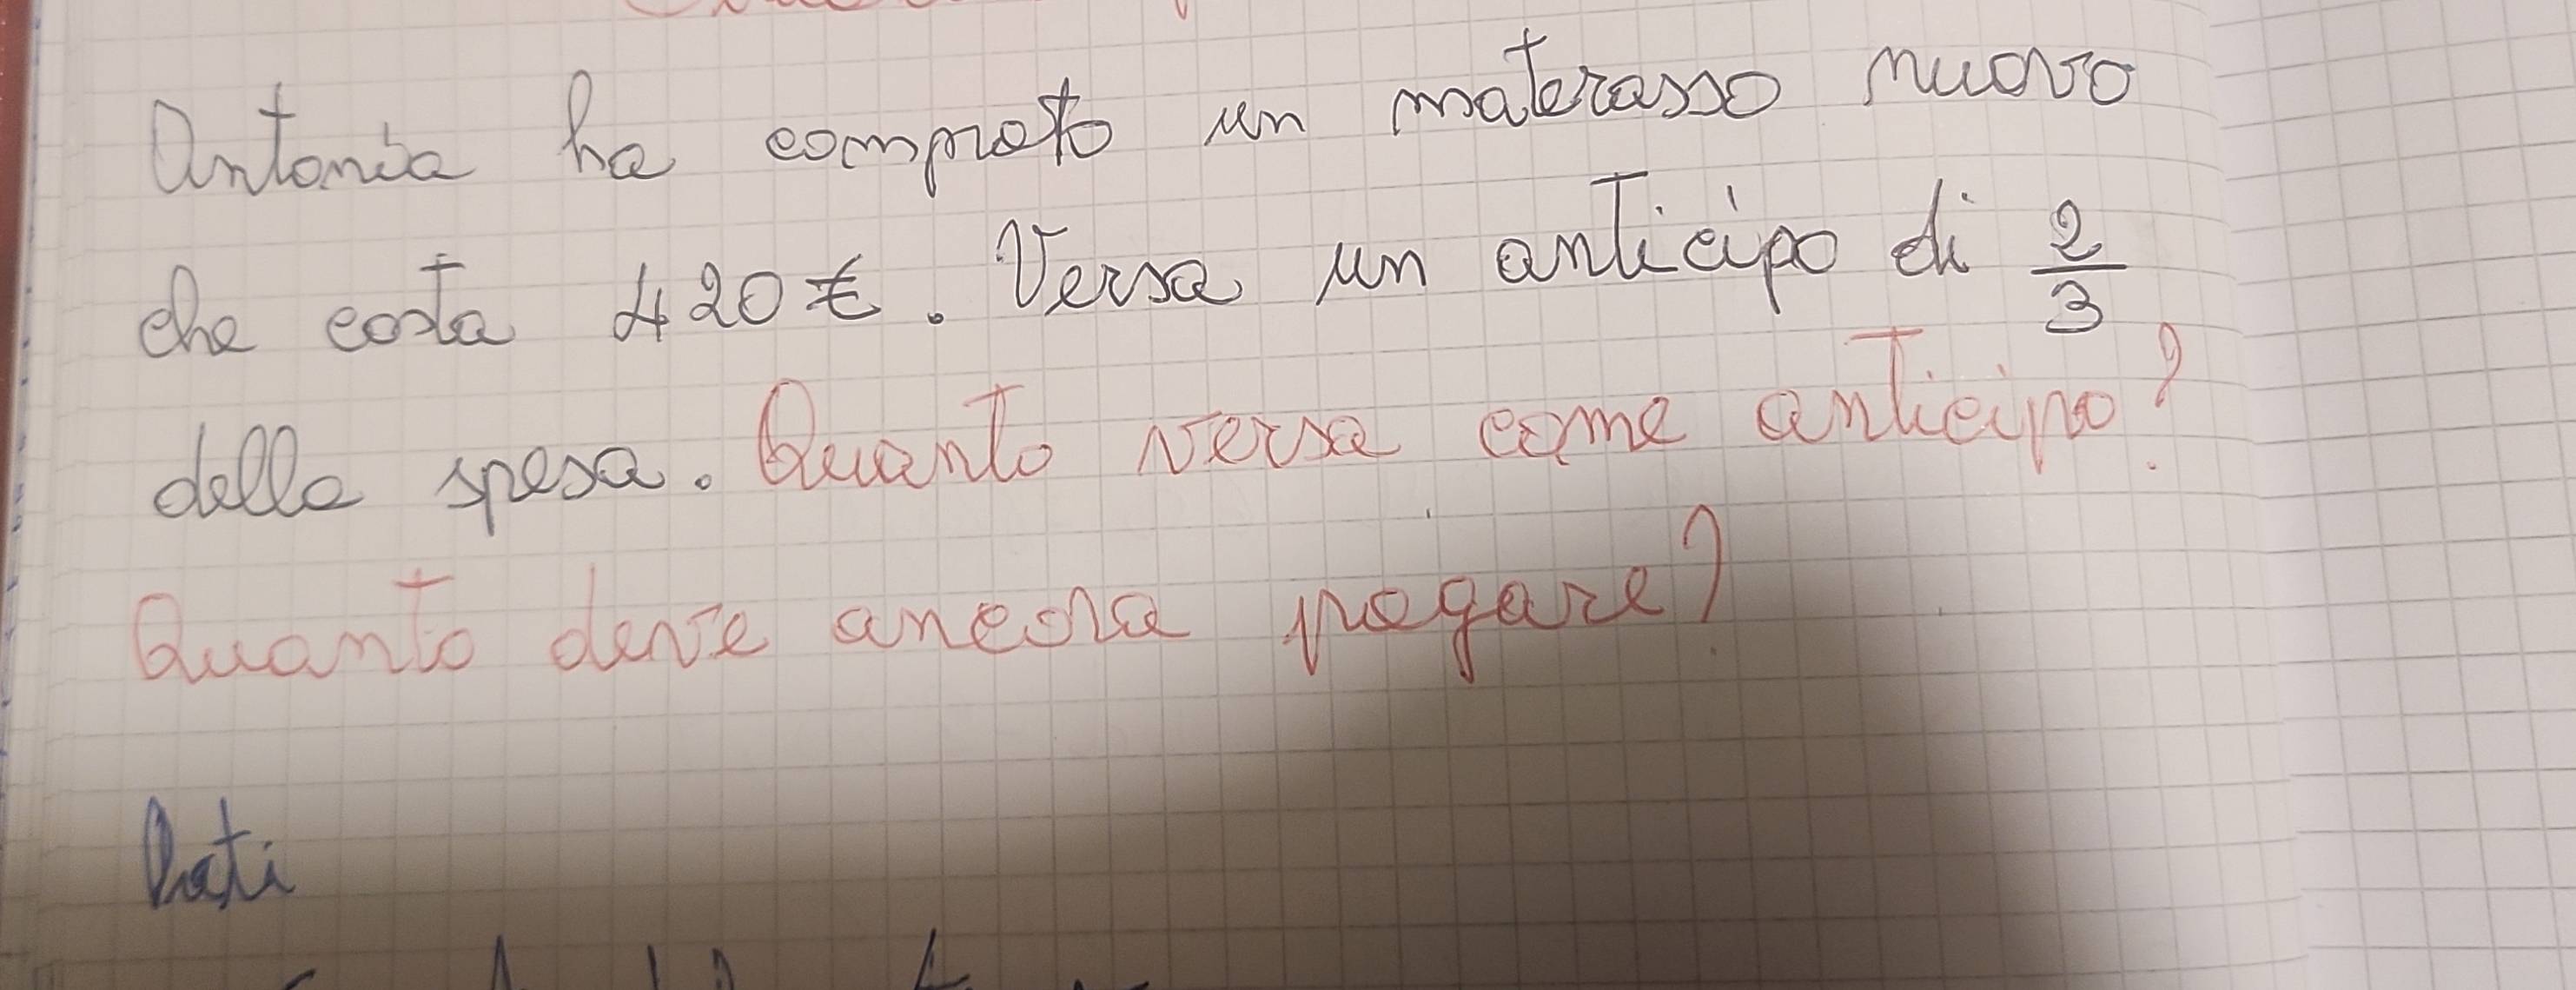 Antonia ha comprato un materasso nuovo
che costa 420 €. Versa un anticipo di 2/3
della spesa. Quanto versa come anticipo?
Quanto deve ancora pagare?
Dati